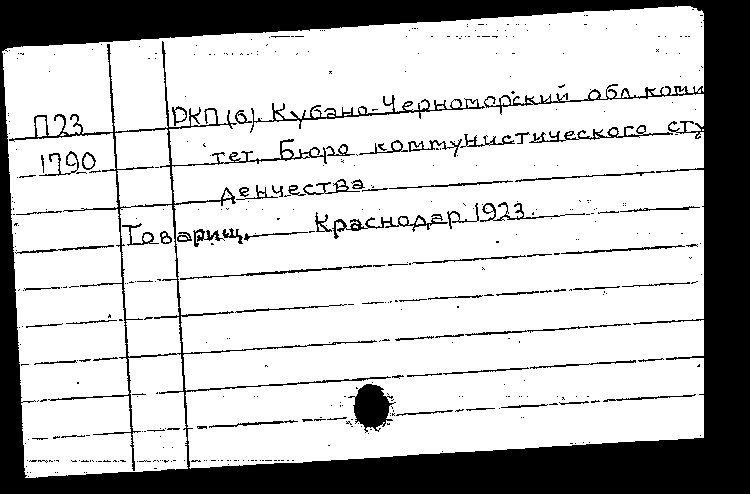 П23 РКП(б). Кубано-Черноморский обл. коми
1790 тет, Бюро коммунистического сту
денчества.
Товарищ. Краснодар. 1923.